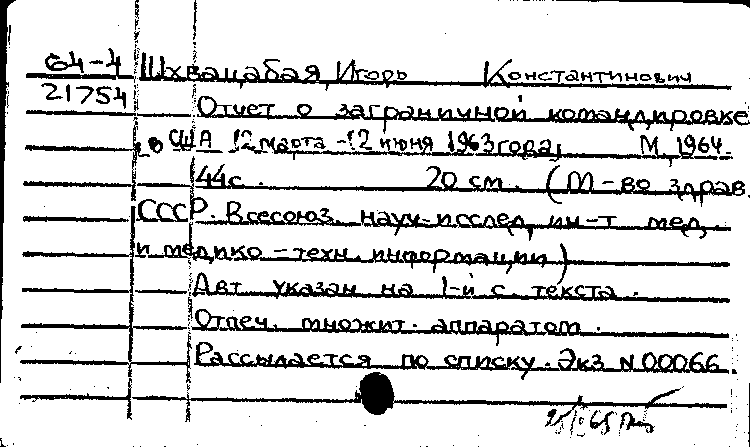 64-4 Шхвацабая, Игорь Константинович
21754 Отчет о заграничной командировке
в США 12 марта - 12 июня 1963 года, М, 1964.
44с. 20 см. (М-во здрав.
СССР. Всесоюз. науч-исслед, ин-т мед,
и медико-техн. информации)
Авт указан на 1-й с. текста.
Отпеч. множит. аппаратом.
Рассылается по списку. Экз N 00066.